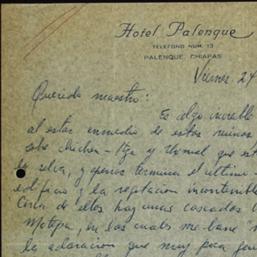 Hotel Palenque
TELEFONO NUM. 13
PALENQUE, CHIAPAS
Viernes. 24
Querido maestro:
Es algo increible
al estar enmedio de estas ruinas
sobre chichen-Itza y Uxmal que
la selva, y apenas termina el ultimo
edificio, la vegetacion incontenible
Cerca de ellas hay unas cascadas
Motepa, en las cuales me bañe
la adoracion que muy poca gente